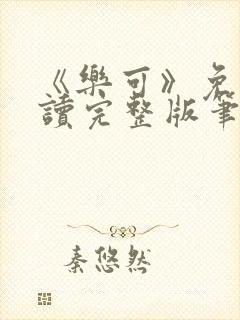 《樂可》免
讀完整版筆
秦悠然